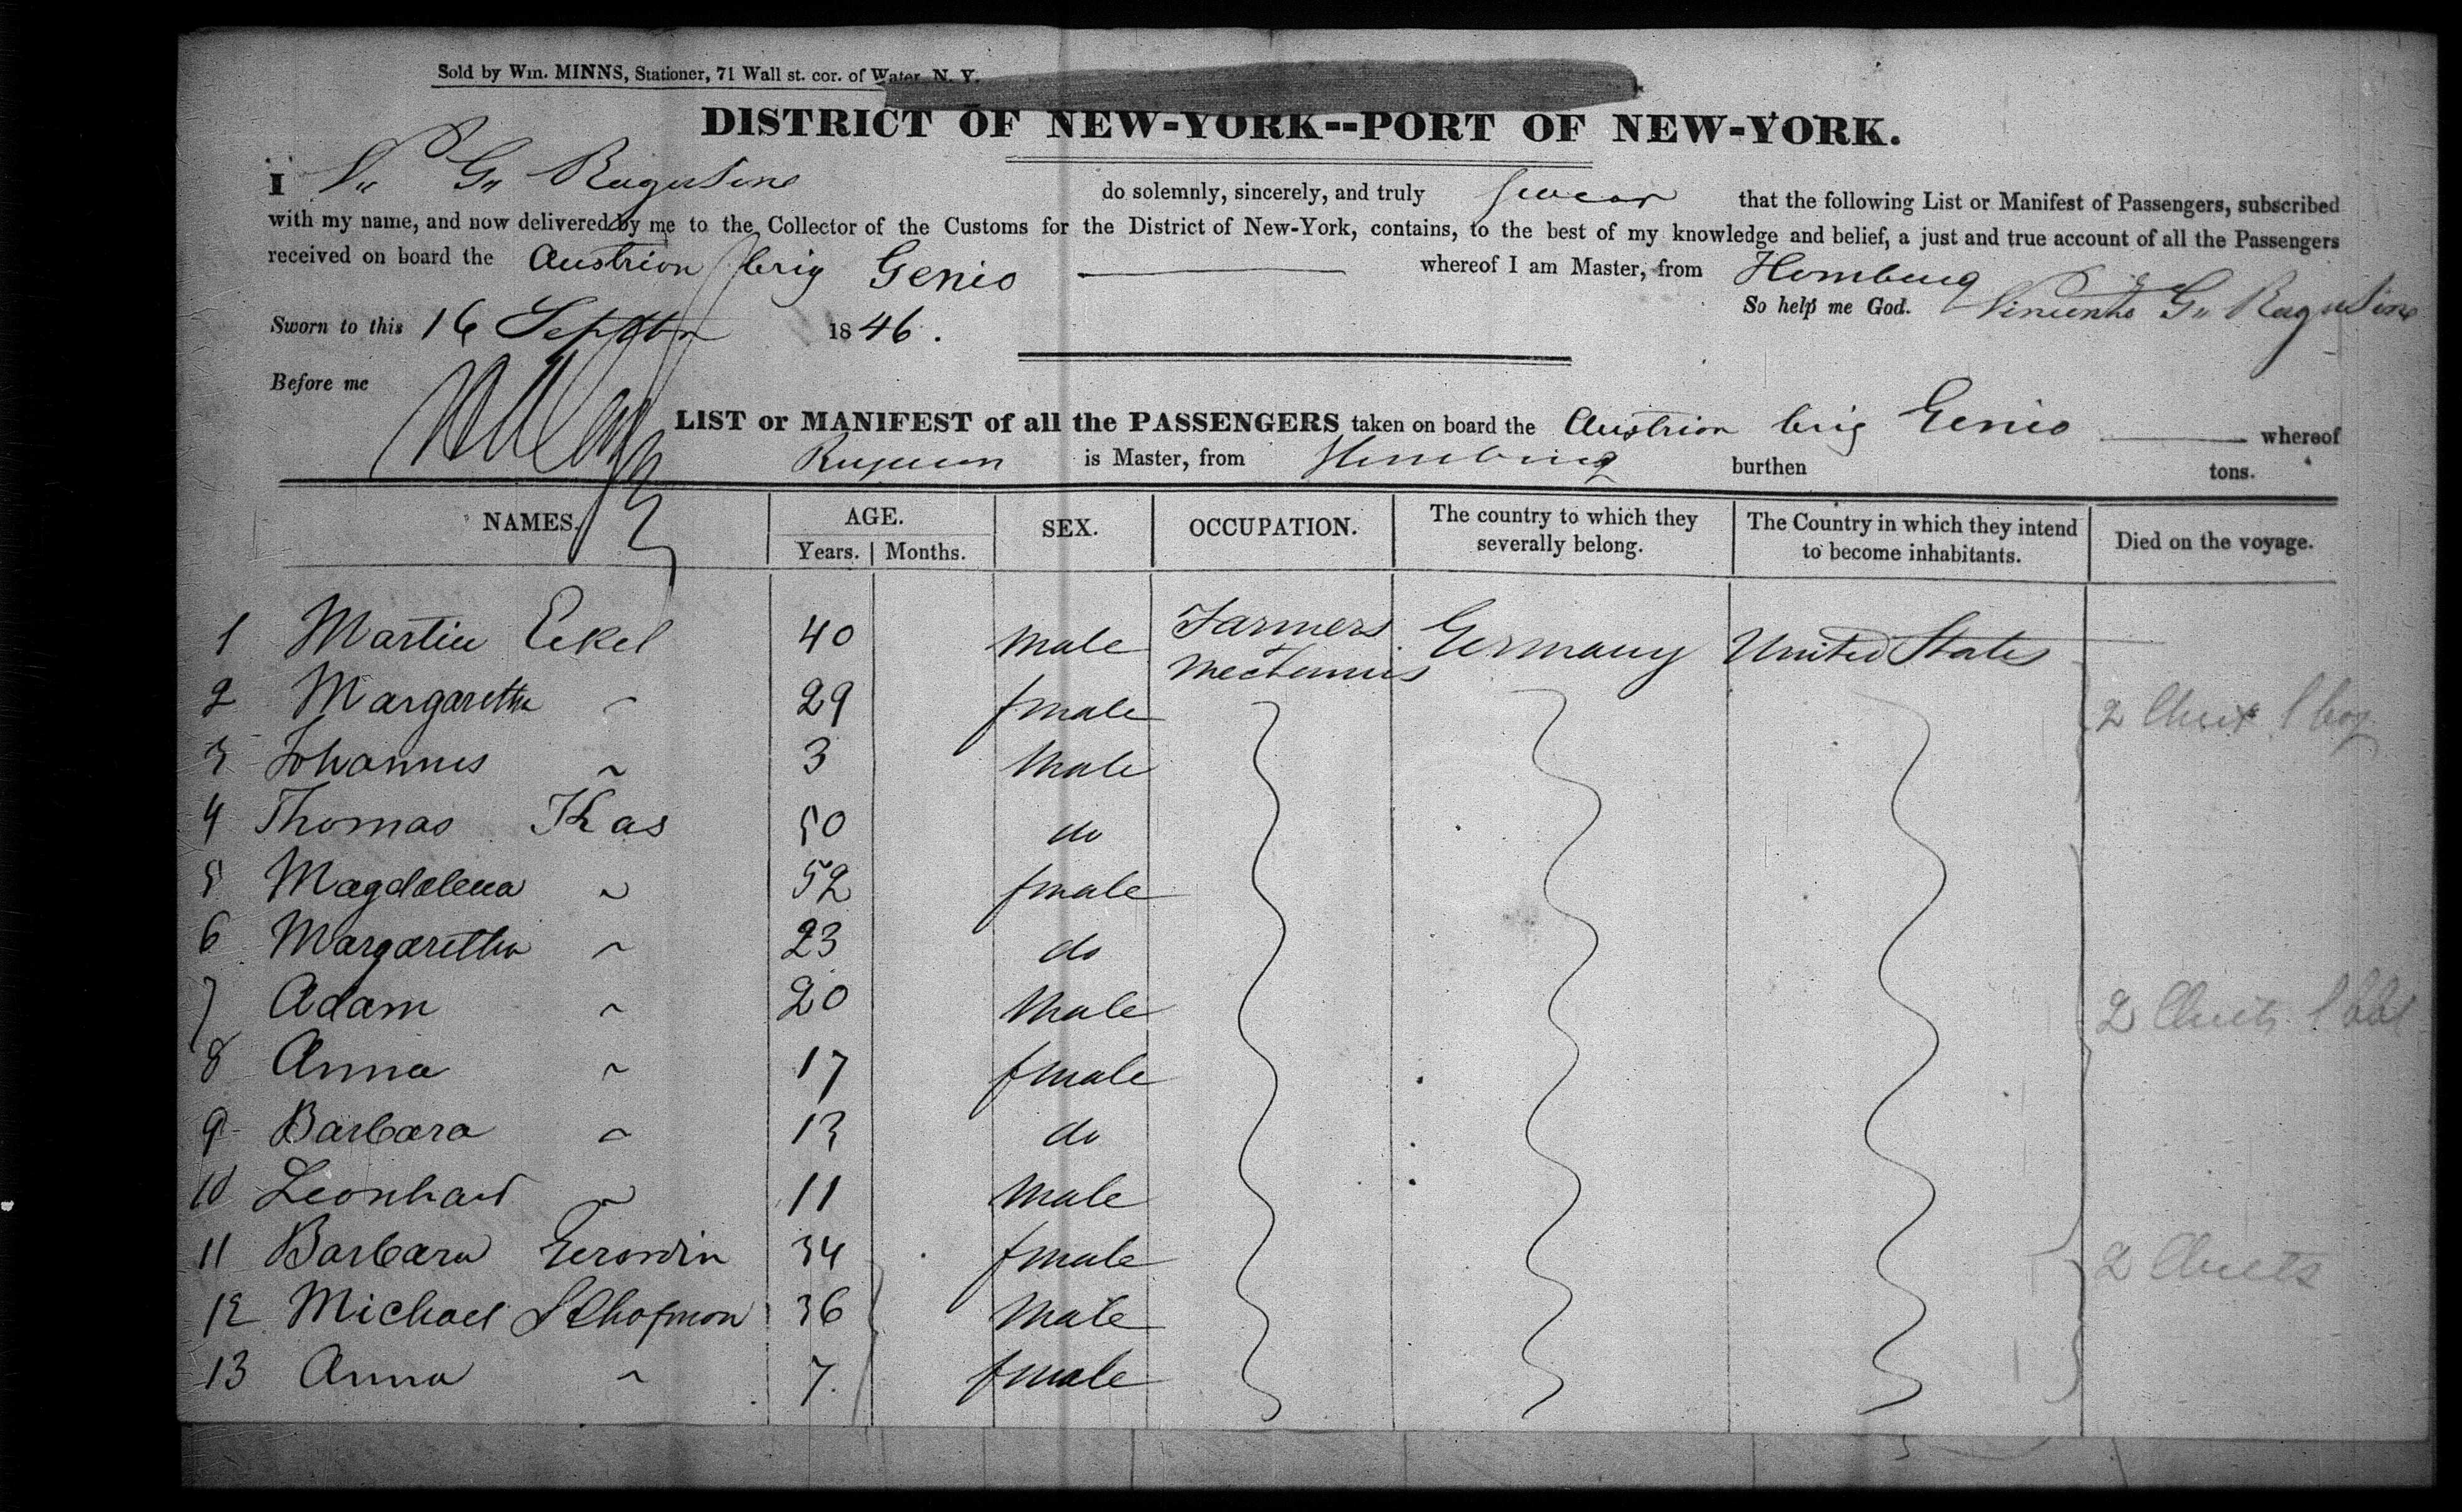 Sold by Wm. MINNS, Stationer, 71 Wall st. cor. of Water N. Y.
DISTRICT OF NEW-YORK--PORT OF NEW-YORK.
I V. G. Ragusino do solemnly, sincerely, and truly swear that the following List or Manifest of Passengers, subscribed
with my name, and now delivered by me to the Collector of the Customs for the District of New-York, contains, to the best of my knowledge and belief, a just and true account of all the Passengers
received on board the Austrian brig Genio whereof I am Master, from Hamburg
So help me God. Vincenzo G. Ragusino
Sworn to this 16 Septbr 1846.
Before me
LIST or MANIFEST of all the PASSENGERS taken on board the Austrian brig Genio whereof
is Master, from Hamburg burthen tons.
NAMES. AGE. SEX. OCCUPATION. The country to which they severally belong. The Country in which they intend to become inhabitants. Died on the voyage.
Years. Months.
1 Martin Eckel 40 Male Farmers Mechanics Germany United States
2 Margaretha " 29 female 2 Chests 1 box
3 Johannes " 3 Male
4 Thomas Kas 50 do
5 Magdalena " 52 female
6 Margaretha " 23 do
7 Adam " 20 Male 2 Chests 1 bbl
8 Anna " 17 female
9 Barbara " 13 do
10 Leonhard " 11 Male
11 Barbara 34 female 2 Chests
12 Michael 36 Male
13 Anna " 7. female